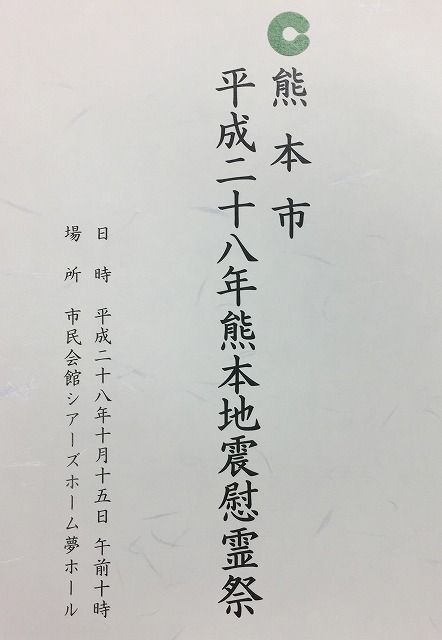 熊本市
平成二十八年熊本地震慰霊祭
日時 平成二十八年十月十五日 午前十時
場所 市民会館シアーズホーム夢ホール